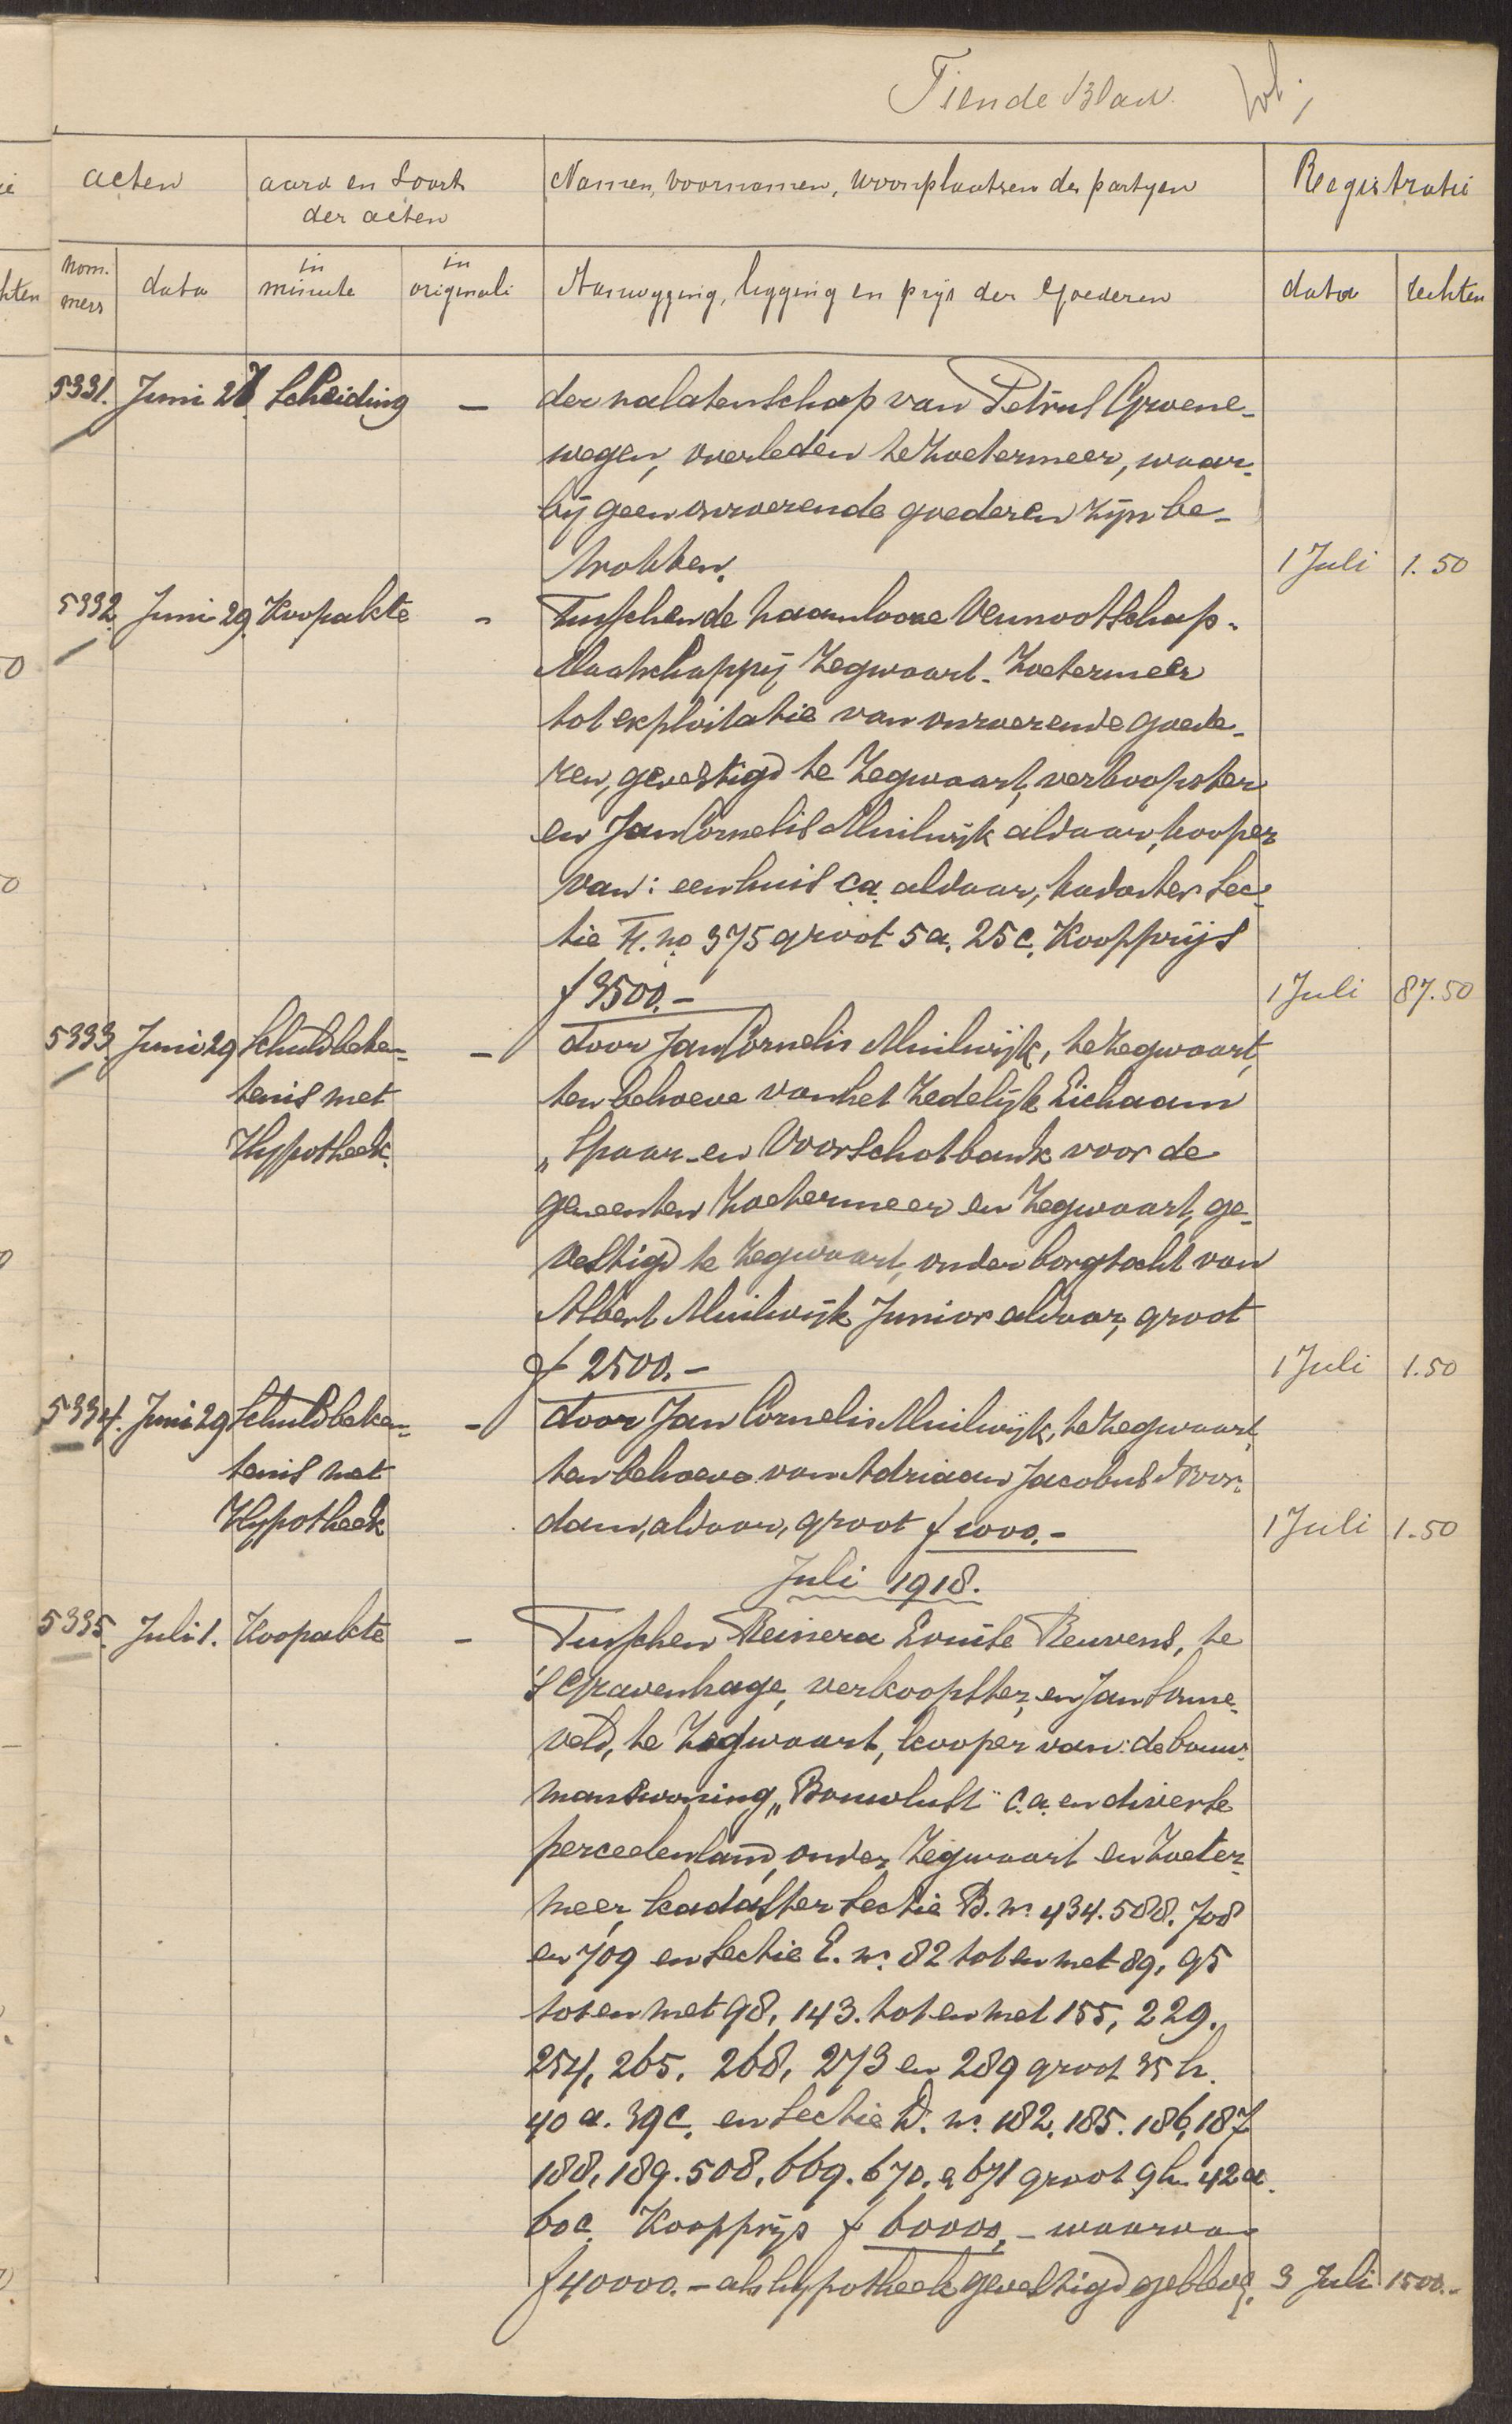 Tiende Blad.
acten
aard en Soort
der acten
Namen, voornamen, woonplaatsen der partyen
Registratie
nom-
mers
data
in
minute
in
originali
Aanwyzing, ligging en prijs der Goederen
data
rechten
5331. Juni 27 Scheiding – der nalatenschap van Petrus Groene-
wegen, overleden te Zoetermeer, waar-
bij geen onroerende goederen zijn be-
trokken. 1 Juli 1.50
5332. Juni 29. Koopakte - Tusschen de Naamlooze Vennootschap-
Maatschappij Zegwaart-Zoetermeer
tot exploitatie van onroerende goede-
ren, gevestigd te Zegwaart, verkoopster
en Jan Cornelis Muilwijk aldaar, kooper
van: een huis c.a. aldaar, kadaster Sec-
tie F. no 375 groot 5 a. 25 c. Koopprijs
f 3500.- 1 Juli 87.50
5333. Juni 29 Schuldbeken- – door Jan Cornelis Muilwijk, te Zegwaart,
tenis met ten behoeve van het Zedelijk Lichaam
Hypotheek. „Spaar-en Voorschotbank voor de
gemeenten Zoetermeer en Zegwaart, ge-
vestigd te Zegwaart, onder borgtocht van
Albert Muilwijk Junior aldaar, groot
f 2500.- 1 Juli 1.50
5334. Juni 29 Schuldbeken- - door Jan Cornelis Muilwijk, te Zegwaart,
tenis met ten behoeve van Adriaan Jacobus Noor-
Hypotheek dam, aldaar, groot f 1000.- 1 Juli 1.50
Juli 1918.
5335. Juli 1. Koopakte – Tusschen Reinera Louise Reuvens, te
's Gravenhage, verkoopster, en Jan Sonne-
veld, te Zegwaart, kooper van: de bouw-
manswoning „Bouwlust" c.a. en diverse
perceelen land, onder Zegwaart en Zoeter-
meer, kadaster Sectie B. no. 434. 588. 708
en 709 en Sectie E. no. 82 tot en met 89, 95
tot en met 98, 143. tot en met 155, 229.
254, 265, 268, 273 en 289 groot 35 h.
40 a. 39 c. en Sectie D. no. 182. 185. 186, 187
188, 189. 508, 669. 670. & 671 groot 9 h. 42 a.
60 c. Koopprijs f 60000,- waarvan
f 40000.- als hypotheek gevestigd gebleve. 3 Juli 1500.-